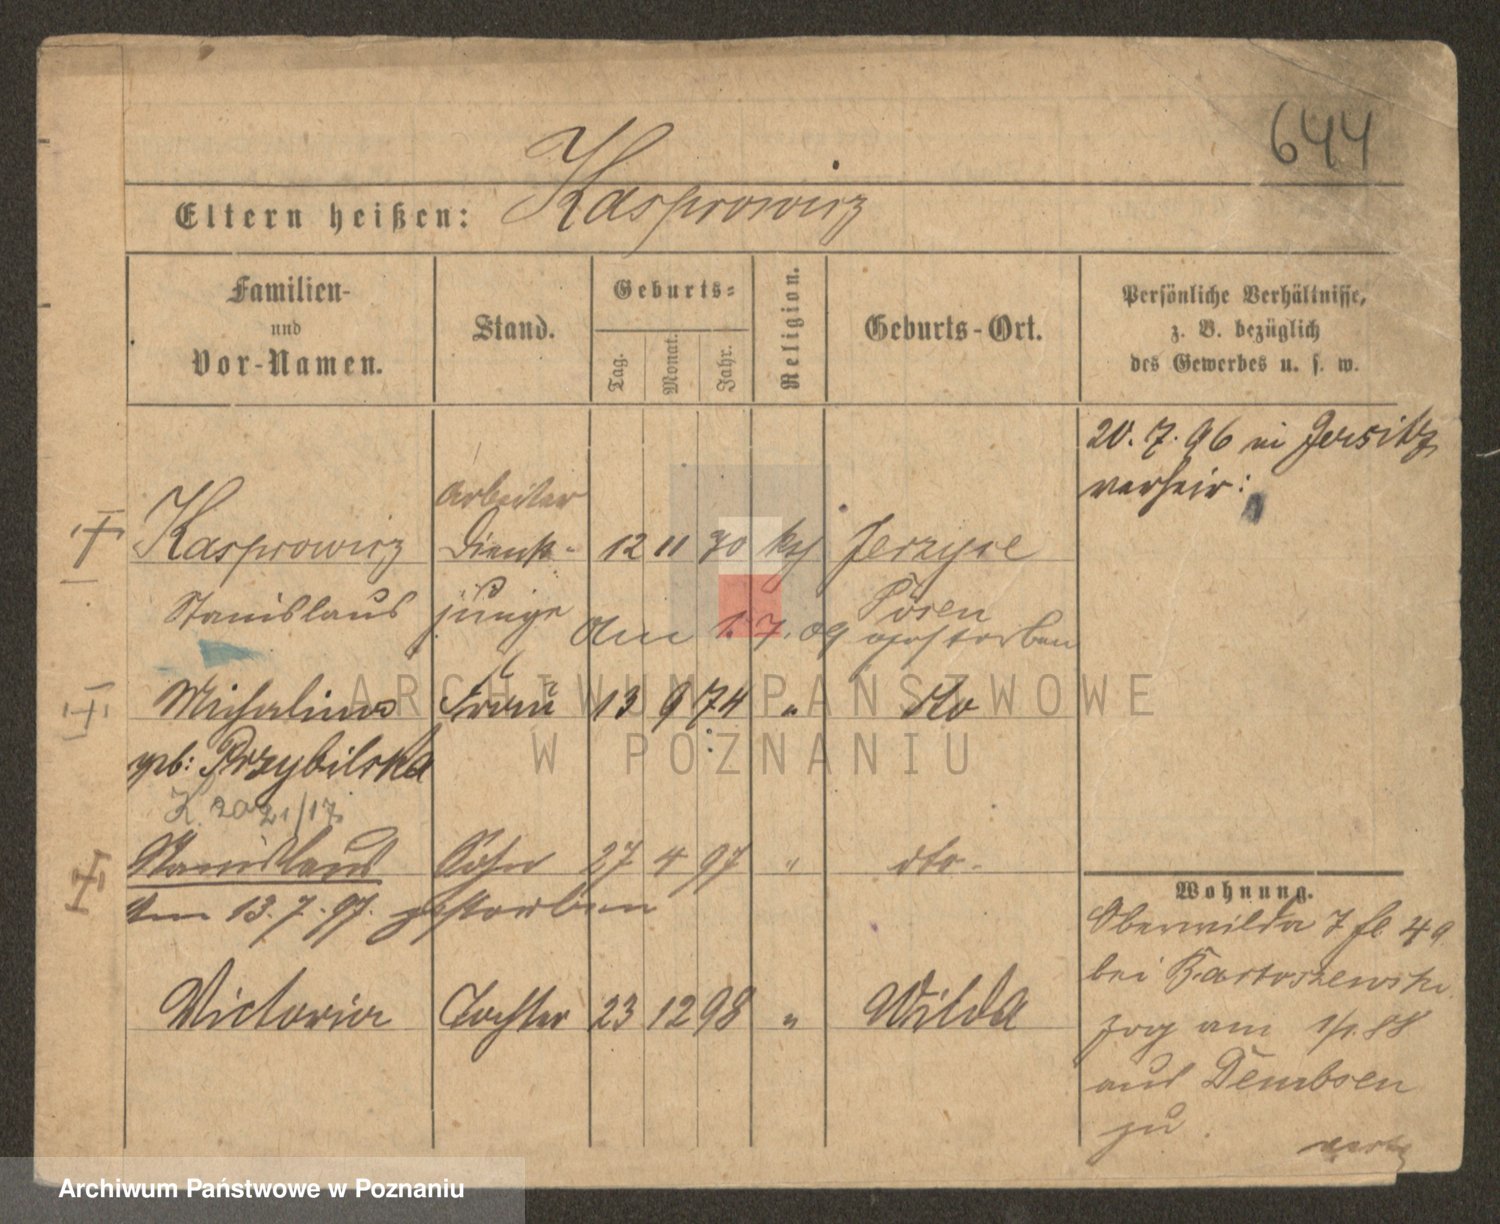 644
Eltern heißen: Kasprowicz
Familien-
und
Vor-Namen.
Stand.
Geburts-
Tag.
Monat.
Jahr.
Religion.
Geburts-Ort.
Persönliche Verhältnisse,
z. B. bezüglich
des Gewerbes u. s. w.
20. 7. 96 in Jersitz
verheir:
Arbeiter
Kasprowicz Dienst- 12 11 70 kth Jerzyce
Stanislaus junge Posen
Am 1. 7. 09 gestorben
Michalina Frau 13 9 74 " dto
geb: Przybilska
K. 2021/17
Stanislaus Sohn 27 4 97 " dto.
Am 13. 7. 97. gestorben
Victoria Tochter 23 12 98 " Wilda
Wohnung.
Oberwilda 7 fl. 49
bei Bartoszewski
zog am 1/1. 88
aus Dembsen
zu.
verte
ARCHIWUM PAŃSTWOWE
W POZNANIU
Archiwum Państwowe w Poznaniu